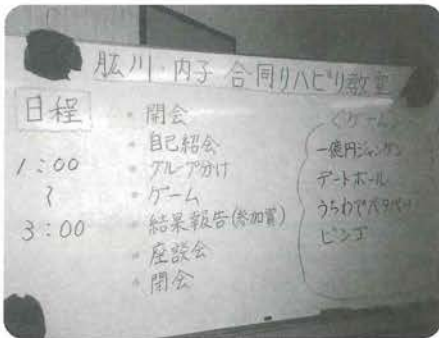 肱川・内子 合同リハビリ教室
日程
1:00
〜
3:00
・開会
・自己紹会
・グループ分け
・ゲーム
・結果報告(参加賞)
・座談会
・閉会
<ゲーム>
一億円ジャンケン
デートボール
うちわでパタパタ
ビンゴ